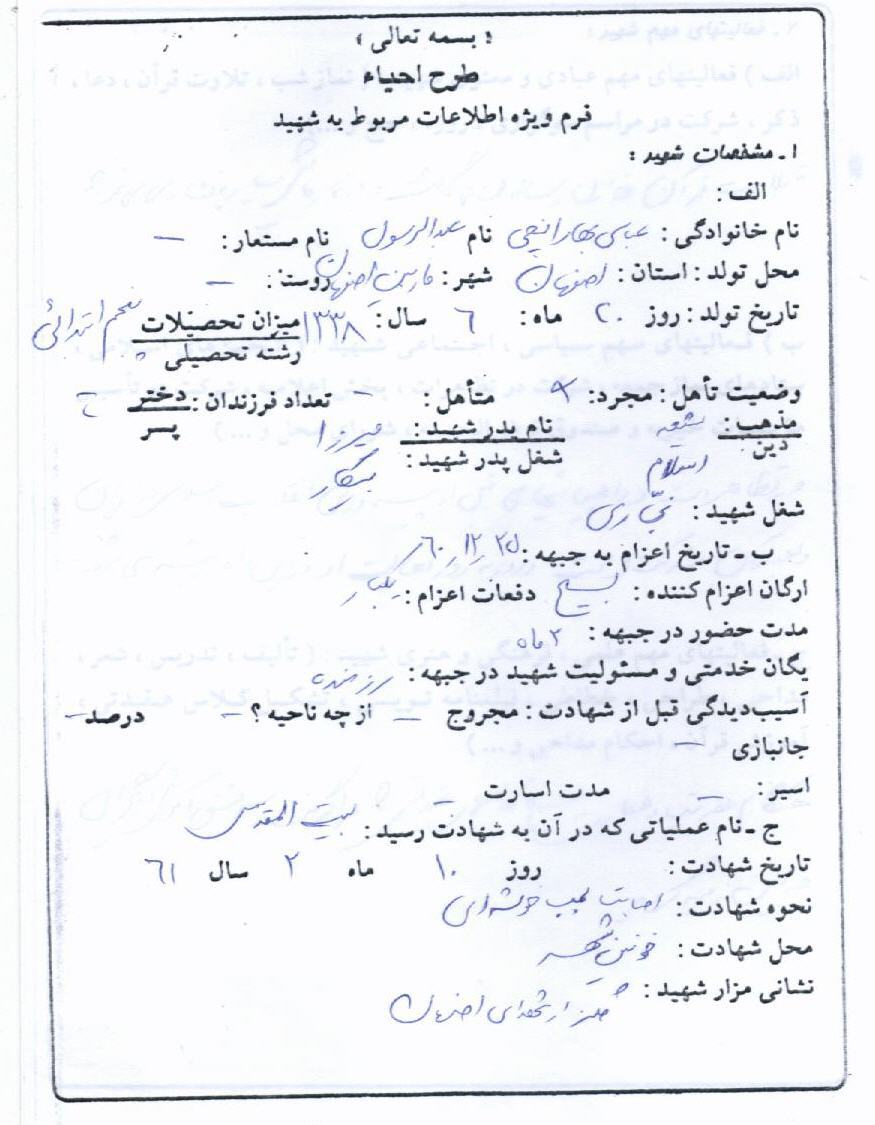 « بسمه تعالی »
طرح احیاء
فرم ویژه اطلاعات مربوط به شهید
۱ ـ مشخصات شهید :
الف :
نام خانوادگی : عباسی بهارانچی نام عبدالرسول نام مستعار : —
محل تولد : استان : اصفهان شهر : اصفهان روستا : —
تاریخ تولد : روز ۲۰ ماه : ۶ سال : ۱۳۳۸ میزان تحصیلات پنجم ابتدائی
رشته تحصیلی
وضعیت تأهل : مجرد : متأهل : — تعداد فرزندان : دختر
پسر
مذهب : شیعه نام پدر شهید : میرزا
دین اسلام شغل پدر شهید : بیکار
شغل شهید : نجاری
ب ـ تاریخ اعزام به جبهه : ۶۰/۱۲/۲۵
ارگان اعزام کننده : بسیج دفعات اعزام : یکبار
مدت حضور در جبهه : ۲ ماه
یگان خدمتی و مسئولیت شهید در جبهه : رزمنده
آسیب‌دیدگی قبل از شهادت : مجروح — از چه ناحیه ؟ — درصد —
جانبازی —
اسیر : — مدت اسارت —
ج ـ نام عملیاتی که در آن به شهادت رسید : بیت المقدس
تاریخ شهادت : روز ۱۰ ماه ۲ سال ۶۱
نحوه شهادت : اصابت بمب خوشه‌ای
محل شهادت : خونین شهر
نشانی مزار شهید : گلزار شهدای اصفهان